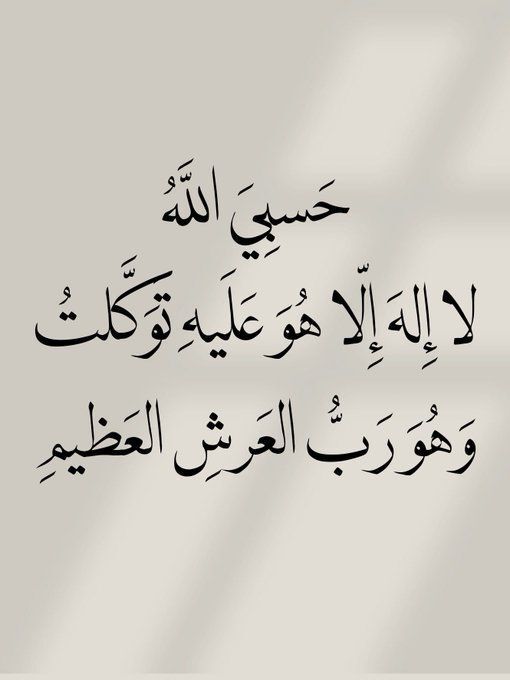 حَسبِيَ اللَّهُ
لا إِلهَ إِلّا هُوَ عَلَيهِ تَوَكَّلتُ
وَهُوَ رَبُّ العَرشِ العَظيمِ